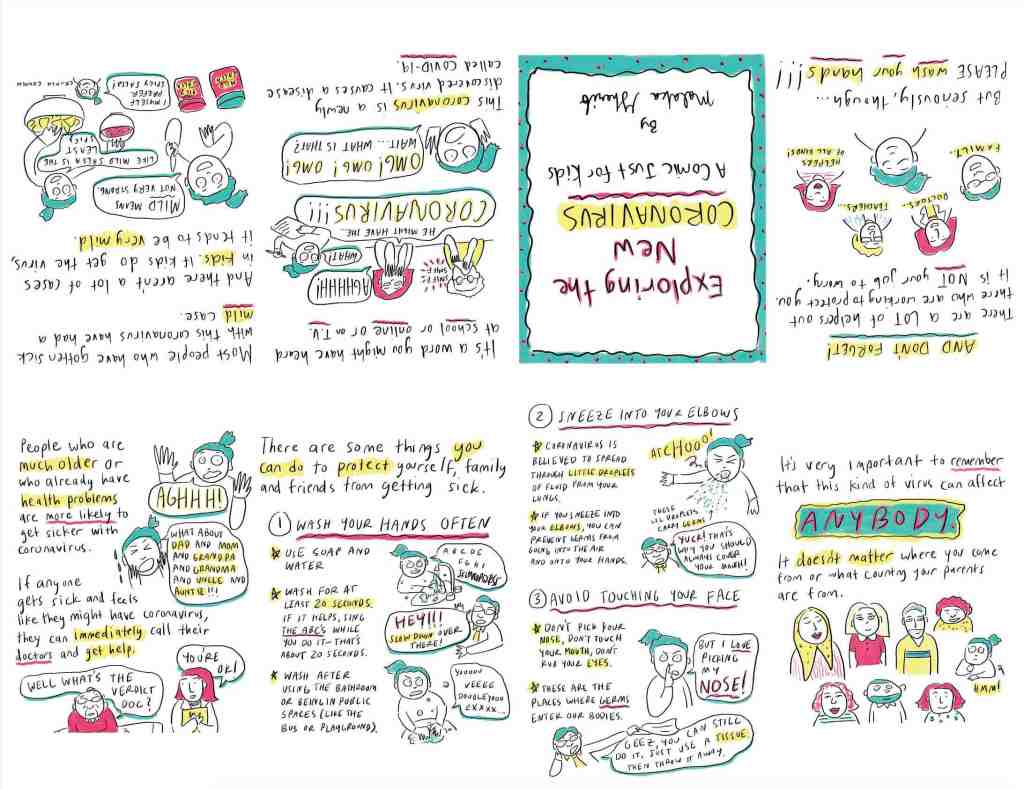 Exploring the
New
CORONAVIRUS
A Comic Just for Kids
By
Malaka Gharib
It's a word you might have heard
at school or online or on T.V.
AGHHHH!
WHAT?
SNIFF
SNIFF
HE MIGHT HAVE THE...
CORONAVIRUS!!!
OMG! OMG! OMG!
WAIT... WHAT IS THAT?
This coronavirus is a newly
discovered virus. It causes a disease
called COVID-19.
Most people who have gotten sick
with this coronavirus have had a
mild case.
And there aren't a lot of cases
in kids. If kids do get the virus,
it tends to be very mild.
MILD MEANS
NOT VERY STRONG.
LIKE MILD SALSA IS THE
LEAST
SPICY.
I MYSELF
PREFER
SPICY SALSA!
MILD
MILD
People who are
much older or
who already have
health problems
are more likely to
get sicker with
coronavirus.
AGHHH!
WHAT ABOUT
DAD AND MOM
AND GRANDPA
AND GRANDMA
AND UNCLE AND
AUNTIE!!!
If anyone
gets sick and feels
like they might have coronavirus,
they can immediately call their
doctors and get help.
WELL WHAT'S THE
VERDICT
DOC?
YOU'RE
OK!
There are some things you
can do to protect yourself, family
and friends from getting sick.
1 WASH YOUR HANDS OFTEN
USE SOAP AND
WATER
WASH FOR AT
LEAST 20 SECONDS.
IF IT HELPS, SING
THE ABC'S WHILE
YOU DO IT – THAT'S
ABOUT 20 SECONDS.
WASH AFTER
USING THE BATHROOM
OR BEING IN PUBLIC
SPACES (LIKE THE
BUS OR PLAYGROUND).
A B C D E
F G H I
JKLMNOPQRS
HEY!!!
SLOW DOWN OVER
THERE!
VEEEE
DOUBLE YOU
2 SNEEZE INTO YOUR ELBOWS
CORONAVIRUS IS
BELIEVED TO SPREAD
THROUGH LITTLE DROPLETS
OF FLUID FROM YOUR
LUNGS.
IF YOU SNEEZE INTO
YOUR ELBOWS, YOU CAN
PREVENT GERMS FROM
GOING INTO THE AIR
AND ONTO YOUR HANDS.
AHCHOOO!
THESE
LIL DROPLETS
CARRY GERMS
YUCK! THAT'S
WHY YOU SHOULD
ALWAYS COVER
YOUR MOUTH!
3 AVOID TOUCHING YOUR FACE
DON'T PICK YOUR
NOSE, DON'T TOUCH
YOUR MOUTH, DON'T
RUB YOUR EYES.
THESE ARE THE
PLACES WHERE GERMS
ENTER OUR BODIES.
BUT I LOVE
PICKING
MY
NOSE!
GEEZ, YOU CAN STILL
DO IT, JUST USE A TISSUE.
THEN THROW IT AWAY.
It's very important to remember
that this kind of virus can affect
ANYBODY.
It doesn't matter where you come
from or what country your parents
are from.
HMM!
AND DON'T FORGET!
There are a LOT of helpers out
there who are working to protect you.
It is NOT your job to worry.
DOCTORS...
TEACHERS...
FAMILY...
HELPERS
OF ALL KINDS!
But seriously, though...
PLEASE wash your hands!!!!